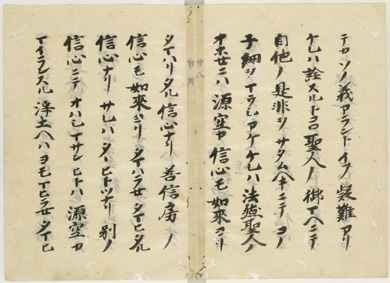 テカソノ義アラントイフ疑難アリ
ケレハ詮スルトコロ聖人ノ御マヘニテ
自他ノ是非ヲサタムヘキニテコノ
子細ヲマフシアケケレハ法然聖人ノ
オホセニハ源空カ信心モ如來ヨリ
タマハリタル信心ナリ善信房ノ
信心モ如來ヨリタマハラセタマヒタル
信心ナリサレハタヽヒトツナリ別ノ
信心ニテオハシマサンヒトハ源空カ
マイランスル浄土ヘハヨモマイラセタマヒ